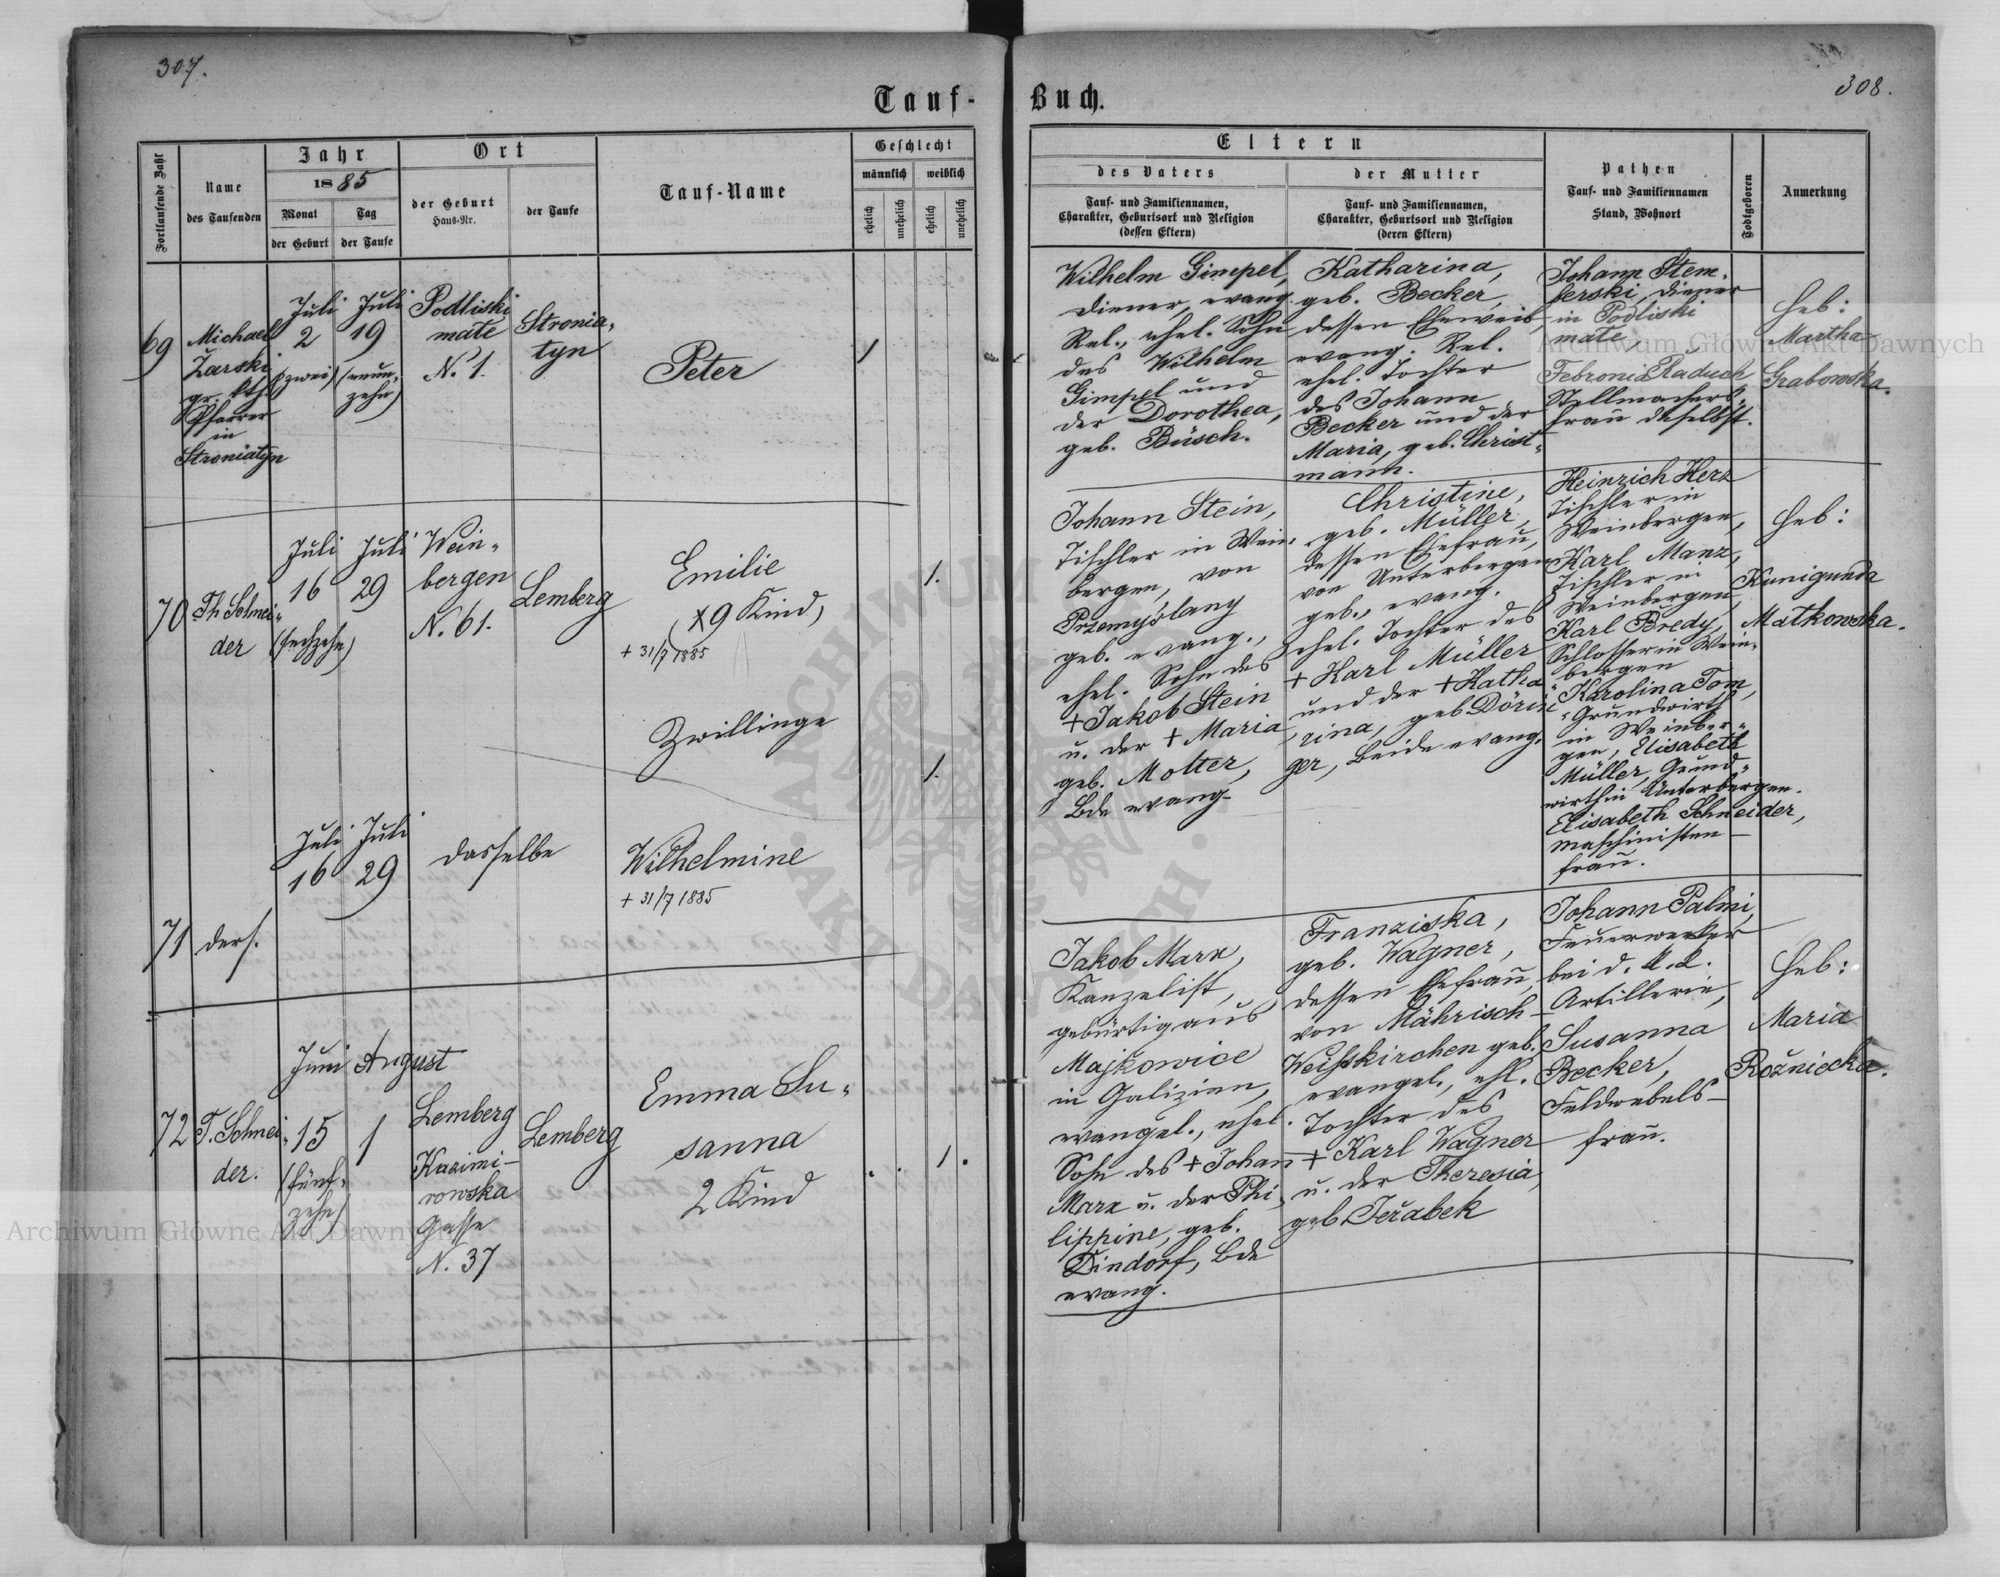 307.
308.
Tauf-
Buch.
Fortlaufende Zahl
Name
des Taufenden
Jahr
1885
Monat
Tag
der Geburt
der Taufe
Ort
der Geburt
Haus-Nr.
der Taufe
Tauf-Name
Geschlecht
männlich
weiblich
ehelich
unehelich
ehelich
unehelich
Eltern
des Vaters
Tauf- und Familiennamen,
Charakter, Geburtsort und Religion
(dessen Eltern)
der Mutter
Tauf- und Familiennamen,
Charakter, Geburtsort und Religion
(deren Eltern)
Pathen
Tauf- und Familiennamen
Stand, Wohnort
Todtgeboren
Anmerkung
69
Michael
Żarski
gr. kth.
Pfarrer
in
Stroniatyn
Juli
2
(zwei)
Juli
19
(neun-
zehn)
Podliski
małe
N. 1.
Stronia-
tyn
Peter
1
Wilhelm Gimpel,
Diener, evang.
Rel., ehel. Sohn
des Wilhelm
Gimpel und
der Dorothea,
geb. Büsch.
Katharina,
geb. Becker
dessen Eheweib,
evang. Rel.
ehel. Tochter
des Johann
Becker und der
Maria, geb. Christ-
mann.
Johann Stem-
berski, Diener
in Podliski
małe,
Febronia Raduch
Stellmachers-
frau daselbst.
Heb:
Martha
Grabowska.
70
Th Schnei-
der
Juli
16
(sechzehn)
Juli
29
Wein-
bergen
N. 61.
Lemberg
Emilie
9 Kind,
+ 31/7 1885
Zwillinge
1.
1.
Johann Stein,
Tischler in Wein-
bergen, von
Przemyślany
geb. evang.,
ehel. Sohn des
+ Jakob Stein
u. der + Maria
geb. Molter,
Bde evang.
Christine,
geb. Müller,
dessen Ehefrau,
von Unterbergen
geb., evang.
ehel. Tochter des
+ Karl Müller
und der + Katha-
rina, geb Dörin-
ger, beide evang.
Heinrich Herz
Tischler in
Weinbergen,
Karl Manz,
Tischler in
Weinbergen,
Karl Bredy,
Schlosser in Wein-
bergen
Karolina Tom,
Grundwirth
in Weinber-
gen, Elisabeth
Müller, Grund-
wirthin Unterbergen.
Elisabeth Schneider,
Maschinisten-
frau.
Heb:
Kunigunda
Matkowska.
71
ders.
Juli
16
Juli
29
dasselbe
Wilhelmine
+ 31/7 1885
72
T. Schnei-
der.
Juni
15
(fünf-
zehn)
August
1
Lemberg
Kazimi-
rowska
Gasse
N. 37
Lemberg
Emma Su-
sanna
2 Kind
1.
Jakob Marx,
Kanzelist,
gebürtig aus
Majkowice
in Galizien,
evangel., ehel.
Sohn des + Johan
Marx u. der Phi-
lippine, geb.
Dindorf, bde
evang.
Franziska,
geb. Wagner,
dessen Ehefrau,
von Mährisch-
Weißkirchen geb.
evangel., ehl.
Tochter des
+ Karl Wagner
u. der Theresia,
geb Jeřabek
Johann Palmi,
Feuerwerker
bei d. k. k.
Artillerie,
Susanna
Becker,
Feldwebels-
frau.
Heb:
Maria
Rożniecka.
Archiwum Główne Akt Dawnych
Archiwum Główne Akt Dawnych